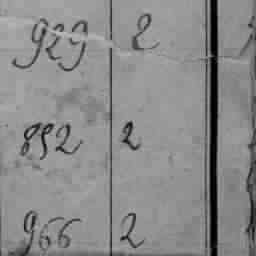 929 2
852 2
966 2